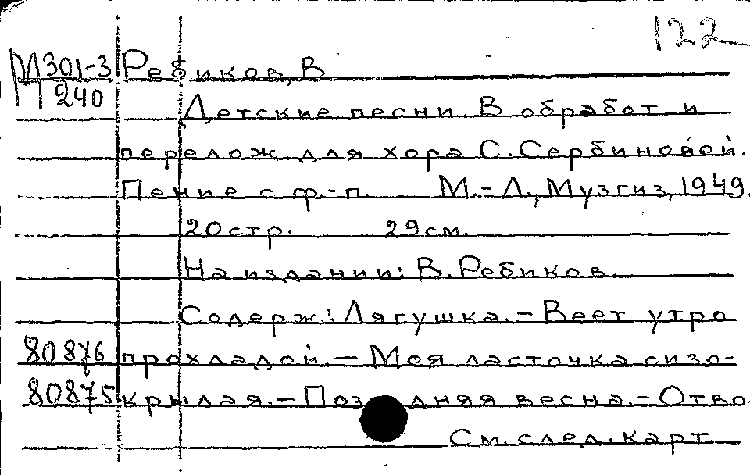 122
М301-3 Ребиков, В
П 240
Детские песни В обработ и
перелож для хора С. Сербиновой.
Пение с ф.-п. М.-Л., Музгиз, 1949.
20 стр. 29 см.
На издании: В. Ребиков.
Содерж: Лягушка. – Веет утро
80876 прохладой. – Моя ласточка сизо-
80875 крылая. – Поздняя весна. – Отво
См. след. карт